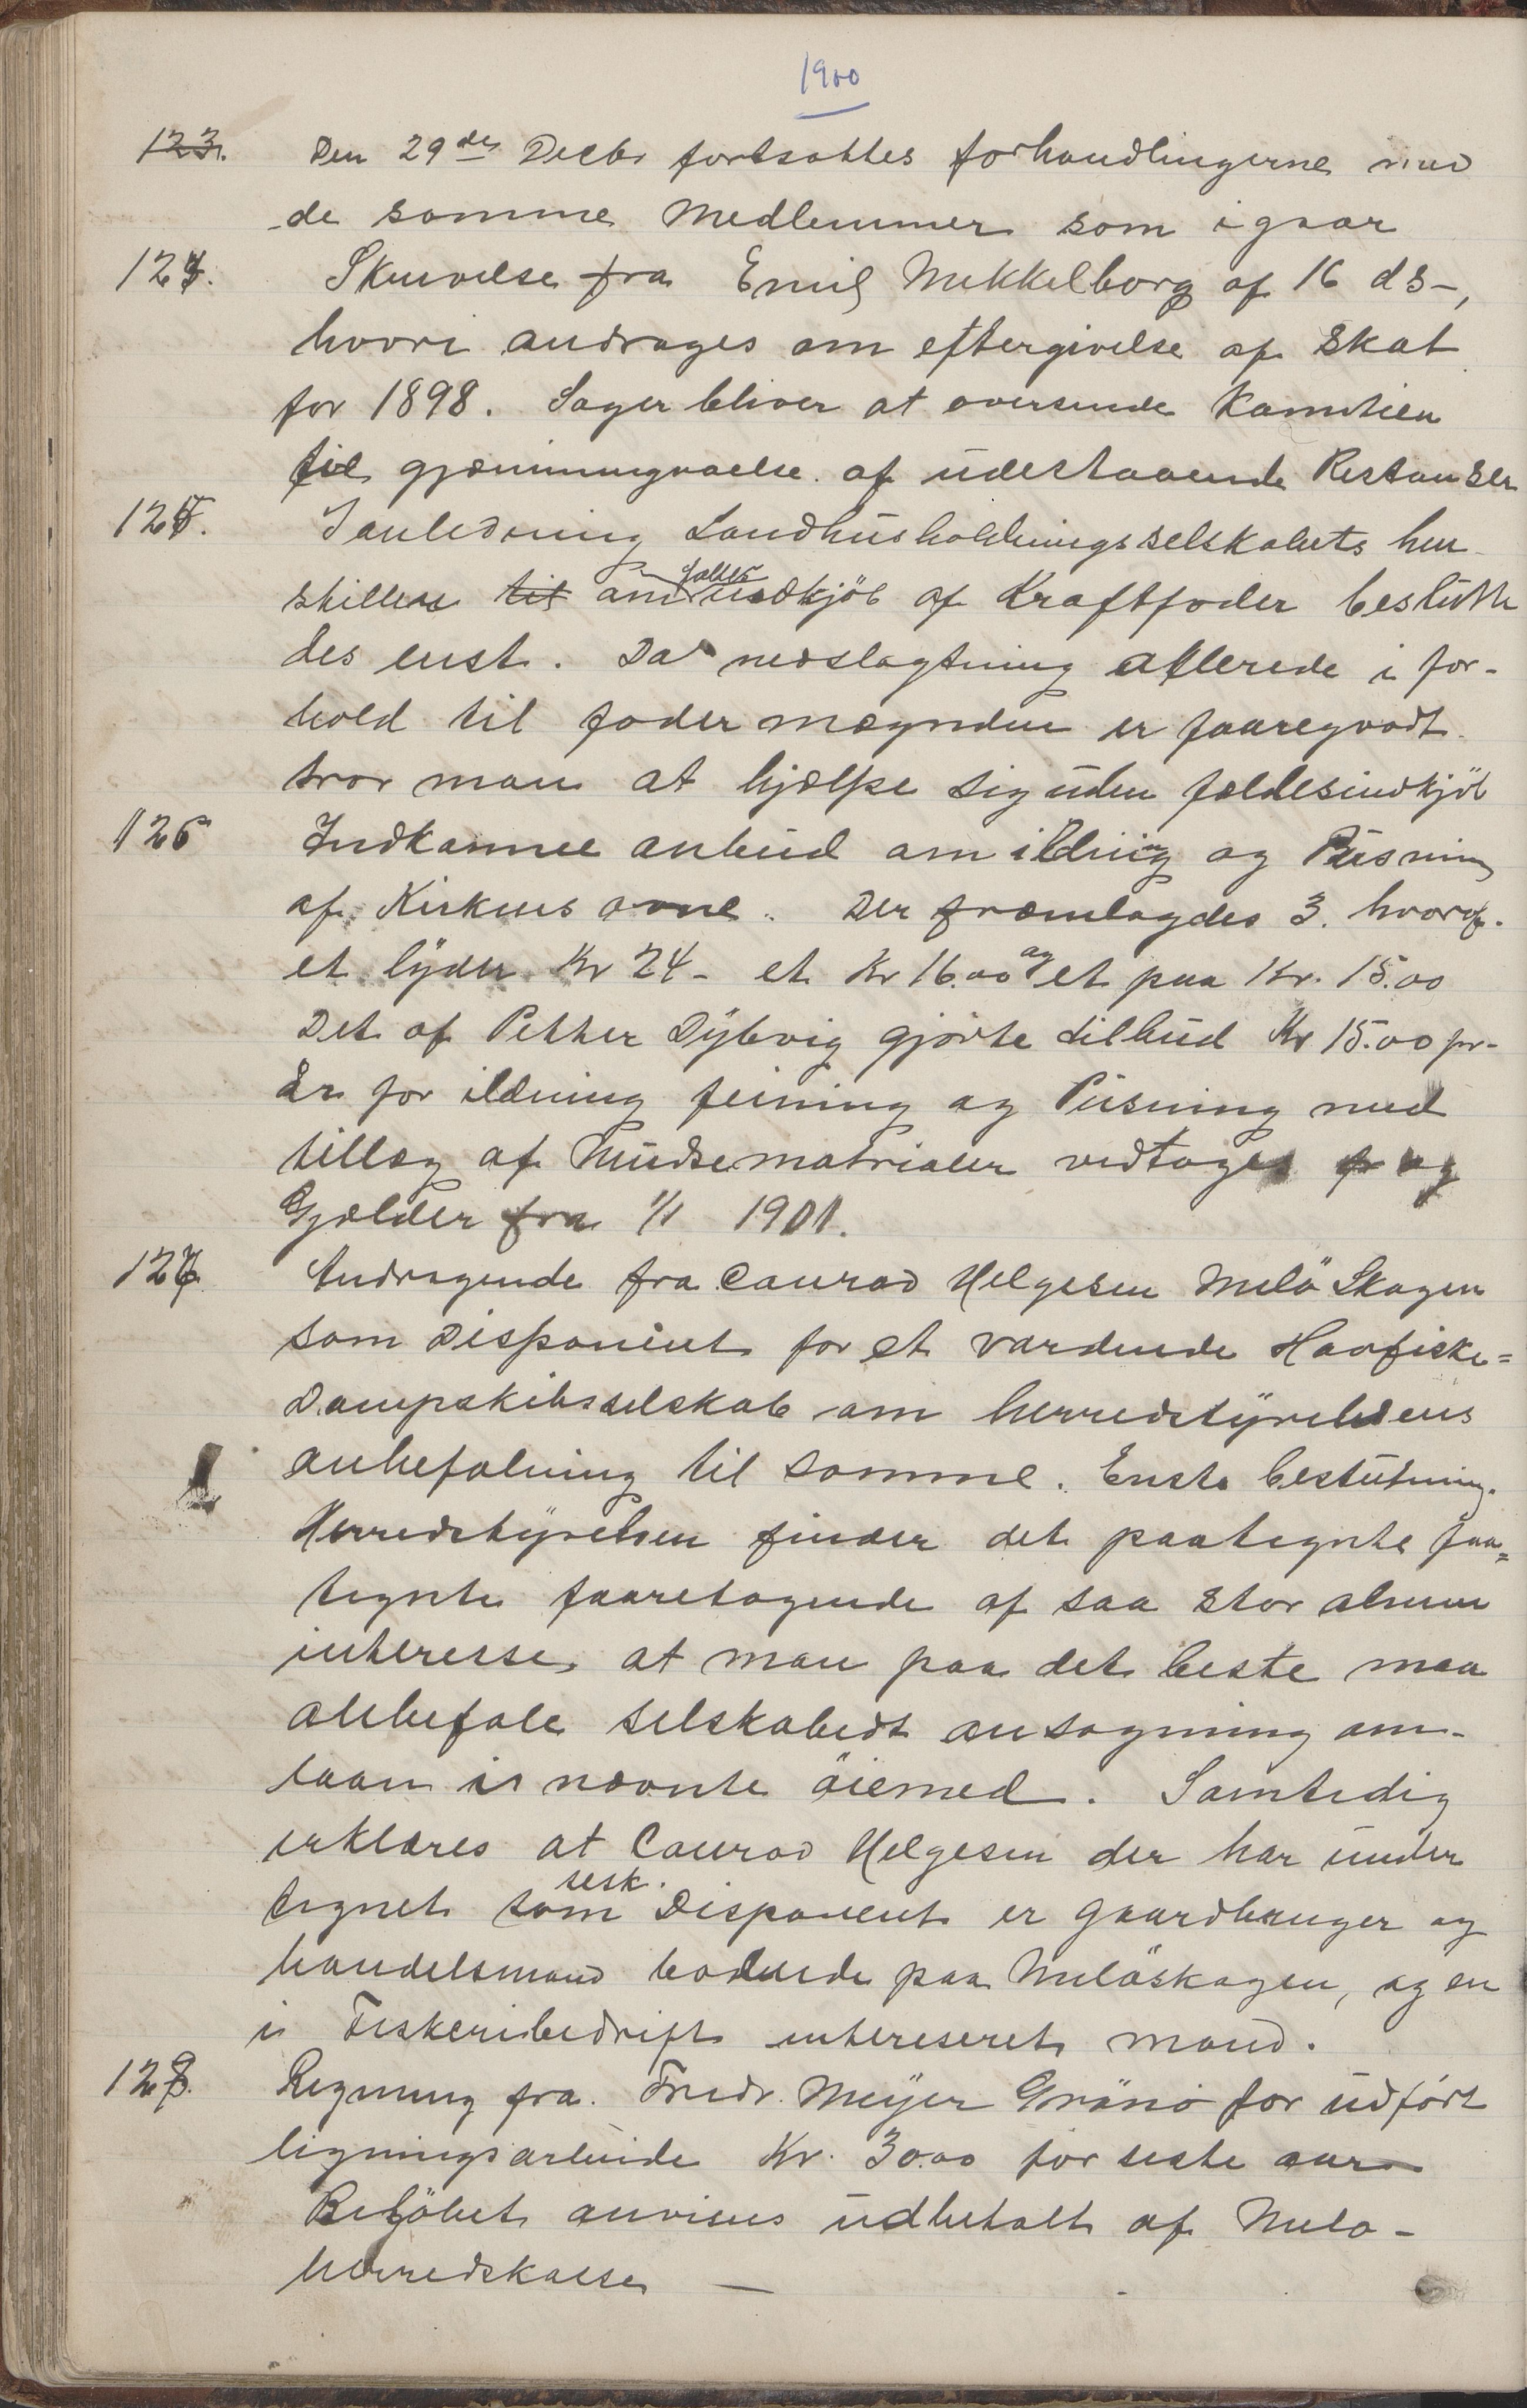 1900
123. Den 29de Decbr fortsattes forhandlingerne med
de samme Medlemmer som igaar
124. Skrivelse fra Emil Mekkelborg af 16 ds-,
hvori andrages om eftergivelse af Skat
for 1898. Sagen bliver at oversende Kæmneren
til gjennemgaaelse af udestaaende Restanser
125. I anledning Landhusholdningsselskabets hen
stillen til om fælles indkjöb af Kraftfoder beslutte
des enst. Da nedslagtning allerede i for-
hold til foder mængden er foaregaadt
tror man at hjælpe sig uden fældesindkjöb
126 Indkomne anbud om ildning og Pusning
af Kirkens ovne. Der fræmlagdes 3. hvoraf
et lyder Kr 24- et Kr 16.00 og et paa Kr. 15.00
Det af Petter Dybvig gjorte tilbud Kr 15.00 pr-
År for ildning feining og Pusning med
tillæg af Pudsematrialer vedtages og
Gjælder fra 1/1 1901.
127. Andragende fra Conrad Helgesen Melö Skagen
som Disponent for et vordende Havfiske=
Dampskibsselskab om herredstyrelsens
anbefalning til samme. Enst. beslutning.
Herredstyrelsen finder det paategnte paa=
tegnte foaretagende af saa stor almen
interesse, at man paa det beste maa
anbefale selskabedt ansøgning om
laan i nævnte öiemed. Samtidig
erklæres at Conrad Helgesen der har under
tegnet som sesk. Disponent er gaardbruger og
handelsmand boende paa Melöskagen, og en
i Fiskeribedrift intereseret mand.
128. Regning fra Fredr. Meyer Grönö for udfört
ligningsarbeide Kr. 30.00 for siste aar
Belöbet anvises udbetalt af Melö-
herredskasse —